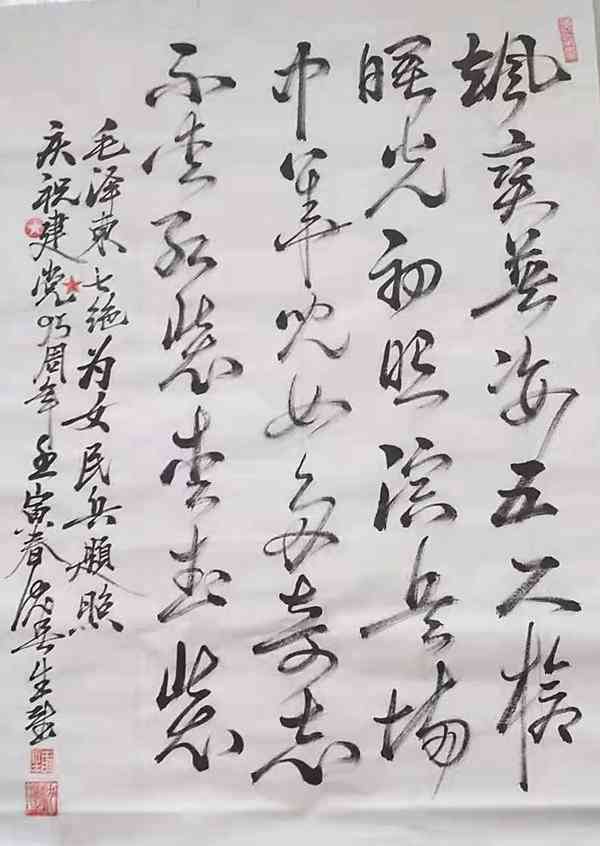 飒爽英姿五尺枪
曙光初照演兵场
中华儿女多奇志
不爱红装爱武装
毛泽东七绝为女民兵题照
庆祝建党95周年壬寅春